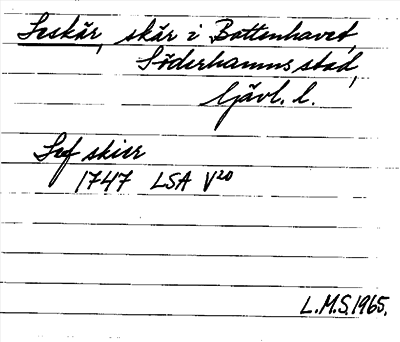 Seskär, skär i Bottenhavet,
Söderhamns stad,
Gävl. l.
Sef skier
1747 LSA V20
L.M.S. 1965.